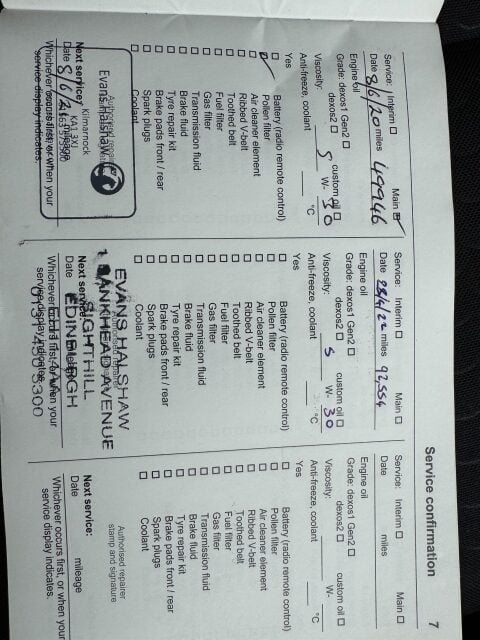 Service confirmation
7
Service: Interim ☐ Main ☑
Date 8/6/20 miles 49946
Engine oil
Grade: dexos1 Gen2 ☐
dexos2 ☐ custom oil ☐
Viscosity: 5 W- 30
Anti-freeze, coolant °C
Yes
☐ Battery (radio remote control)
☑ Pollen filter
☐ Air cleaner element
☐ Ribbed V-belt
☐ Toothed belt
☐ Fuel filter
☐ Gas filter
☐ Transmission fluid
☐ Brake fluid
☐ Tyre repair kit
☐ Brake pads front / rear
☐ Spark plugs
☐ Coolant
Evans Halshaw
Kilmarnock
KA1 3XJ
Next service:
Date 8/6/21 mileage
Whichever occurs first, or when your
service display indicates.
Service: Interim ☐ Main ☐
Date 28/4/22 miles 92,554
Engine oil
Grade: dexos1 Gen2 ☐
dexos2 ☐ custom oil ☐
Viscosity: 5 W- 30
Anti-freeze, coolant °C
Yes
☐ Battery (radio remote control)
☐ Pollen filter
☐ Air cleaner element
☐ Ribbed V-belt
☐ Toothed belt
☐ Fuel filter
☐ Gas filter
☐ Transmission fluid
☐ Brake fluid
☐ Tyre repair kit
☐ Brake pads front / rear
☐ Spark plugs
☐ Coolant
EVANS HALSHAW
1 BANKHEAD AVENUE
SIGHTHILL
EDINBURGH
Next service:
Date
Whichever occurs first, or when your
service display indicates.
Service: Interim ☐ Main ☐
Date miles
Engine oil
Grade: dexos1 Gen2 ☐
dexos2 ☐ custom oil ☐
Viscosity: W-
Anti-freeze, coolant °C
Yes
☐ Battery (radio remote control)
☐ Pollen filter
☐ Air cleaner element
☐ Ribbed V-belt
☐ Toothed belt
☐ Fuel filter
☐ Gas filter
☐ Transmission fluid
☐ Brake fluid
☐ Tyre repair kit
☐ Brake pads front / rear
☐ Spark plugs
☐ Coolant
Authorised repairer
stamp and signature
Next service:
Date mileage
Whichever occurs first, or when your
service display indicates.